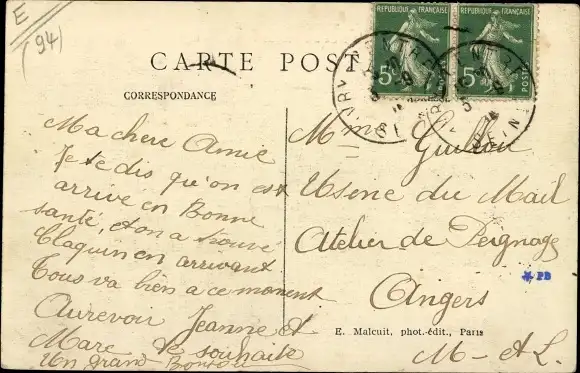 E
(94)
CARTE POST
CORRESPONDANCE
REPUBLIQUE FRANÇAISE
REPUBLIQUE FRANÇAISE
5c
5c
POSTES
Ma chere Amie
Je te dis qu'on est
arrivé en Bonne
santé, et on a trouvé
Claquin en arrivant
Tous va bien a ce moment
Aurevoir Jeanne et
Marc te souhaite
Un grand Bonjour
Mme
Usine du Mail
Atelier de Peignage
Angers
M- et L.
PD
E. Malcuit, phot.-édit., Paris